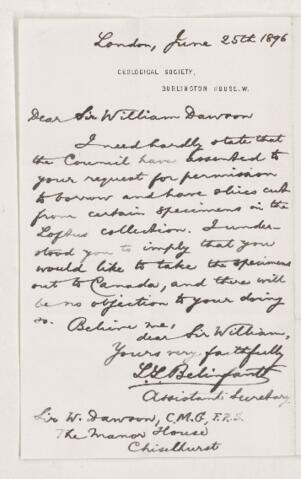 London, June 25th 1896
GEOLOGICAL SOCIETY,
BURLINGTON HOUSE, W.
Dear Sir William Dawson
I need hardly state that
the Council have assented to
your request for permission
to borrow and have slices cut
from certain specimens in the
Loftus collection. I under-
stood you to imply that you
would like to take the specimens
out to Canada, and there will
be no objection to your doing
so. Believe me,
dear Sir William,
Yours very faithfully
L.L. Belinfante
Assistant Secretary.
Sir W. Dawson, C.M.G, F.R.S.
The Manor House
Chiselhurst